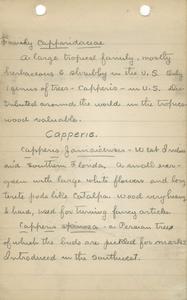 Family Capparidaceae
A large tropical family, mostly
herbaceous & shrubby in the U.S. Only
1 genus of trees - Capparis - in U.S. Dis-
tributed around the world in the tropics
wood valuable.
Capparis.
Capparis Jamaicensis - West Indies
and Southern Florida. A small ever-
green with large white flowers and long
terete pods like Catalpa. Wood very heavy
& hard, used for turning fancy articles.
Capparis spinosa - a Persian tree
of which the buds are pickled for market
Introduced in the southwest.